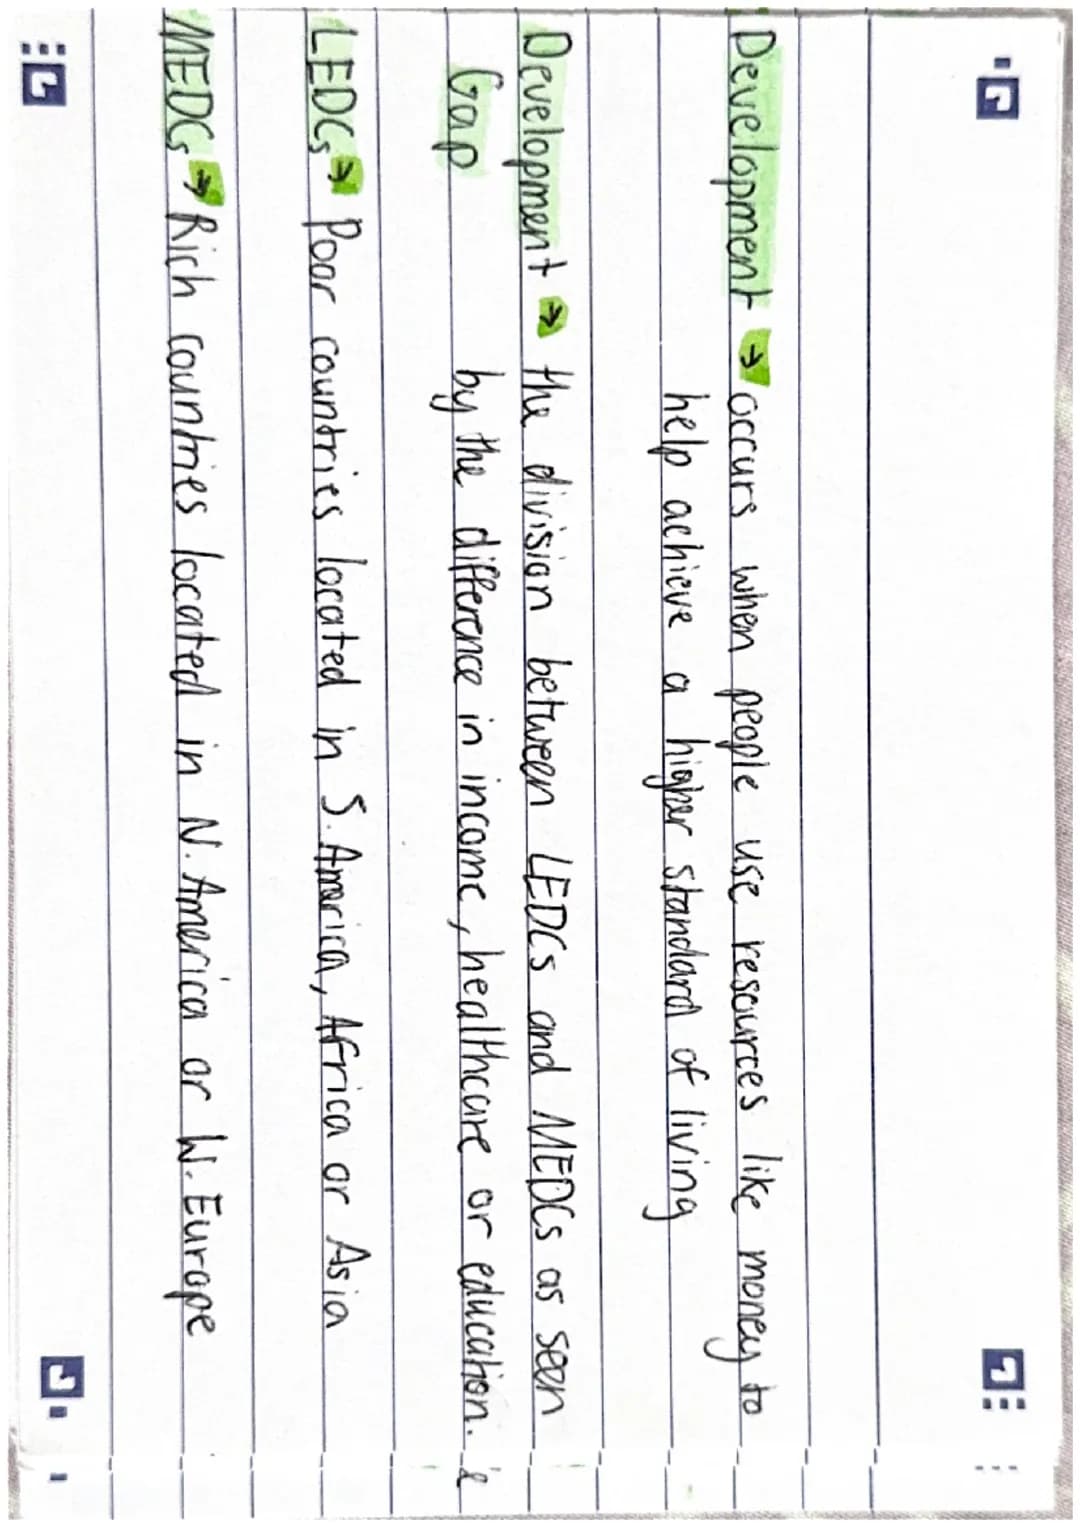 Development → occurs when people use resources like money to
help achieve a higher standard of living
Development → the division between LEDCs and MEDCs as seen
Gap by the difference in income, healthcare or education.
LEDCs → Poor countries located in S. America, Africa or Asia
MEDCs → Rich countries located in N. America or W. Europe